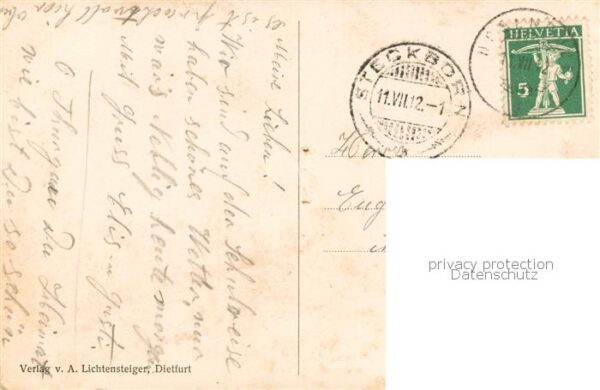 Meine Lieben!
Wir sind auf der Schulreise
haben schönes Wetter, nur
war's Neblig heute morge
Mit Gruss Elis u Gusti
O Thurgau du Heimat
wie bist du so schön
STECKBORN
11.VII.12.-1
HELVETIA
5
Eug
privacy protection
Datenschutz
Verlag v. A. Lichtensteiger, Dietfurt